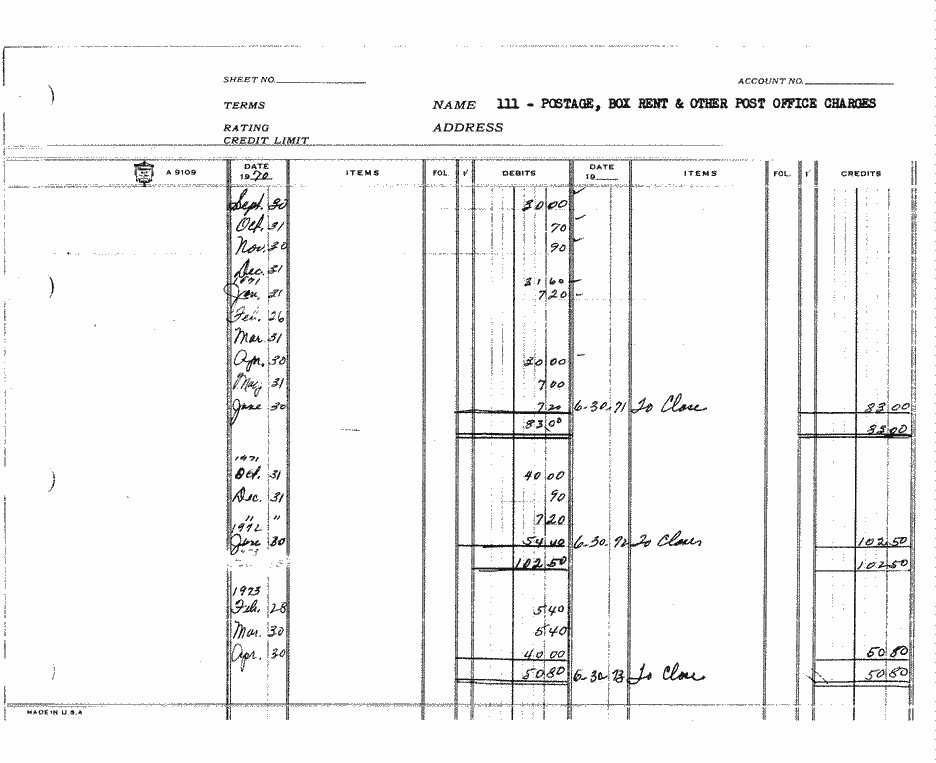 SHEET NO. ACCOUNT NO.
TERMS NAME 111 - POSTAGE, BOX RENT & OTHER POST OFFICE CHARGES
RATING ADDRESS
CREDIT LIMIT
A 9109 DATE 1970 ITEMS FOL. √ DEBITS DATE 19 ITEMS FOL. √ CREDITS
Sept. 30 30 00
Oct. 31 70
Nov. 30 90
Dec. 31
1971 31 60
Jan. 31 7 20
Feb. 26
Mar. 31
Apr. 30 30 00
May 31 7 00
June 30 7 20 6-30-71 To Close 83 00
83 00 83 00
1971
Oct. 31 40 00
Dec. 31 90
" " 7 20
1972
June 30 54 40 6-30-72 To Close 102 50
102 50 102 50
1973
Feb. 28 5 40
Mar. 30 5 40
Apr. 30 40 00 50 80
50 80 6-30-73 To Close 50 80
MADE IN U.S.A